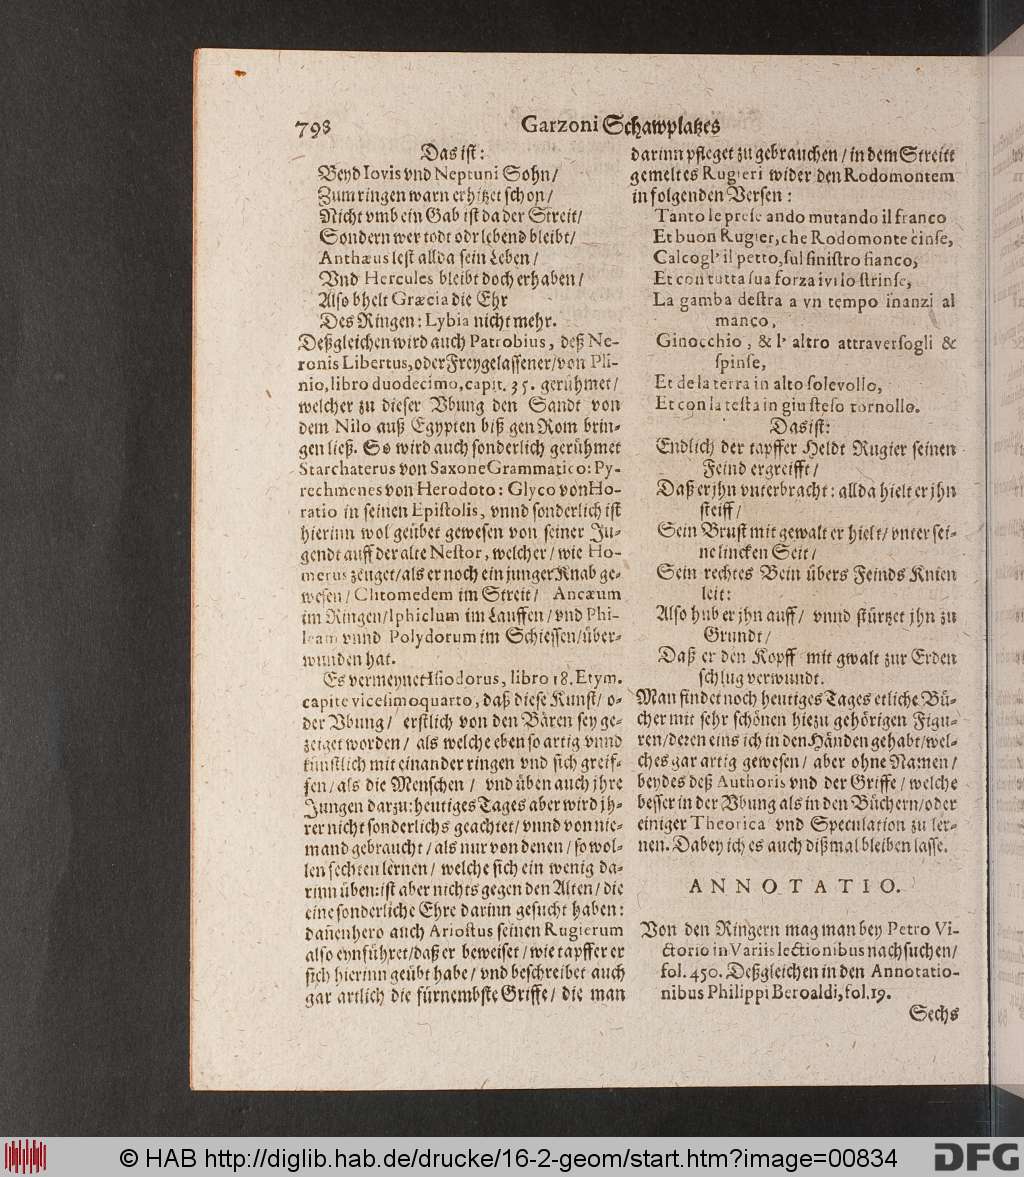 798
Garzoni Schawplatzes
Das ist:
Beyd Iovis vnd Neptuni Sohn/
Zum ringen warn erhitzet schon/
Nicht vmb ein Gab ist da der Streit/
Sondern wer todt odr lebend bleibt/
Anthæus lest allda sein Leben/
Vnd Hercules bleibt doch erhaben/
Also bhelt Græcia die Ehr
Des Ringen: Lybia nicht mehr.
Deßgleichen wird auch Patrobius, deß Ne-
ronis Libertus, oder Freygelassener/ von Pli-
nio, libro duodecimo, capit. 35. gerühmet/
welcher zu dieser Vbung den Sandt von
dem Nilo auß Egypten biß gen Rom brin-
gen ließ. So wird auch sonderlich gerühmet
Starchaterus von Saxone Grammatico: Py-
rechmenes von Herodoto: Glyco von Ho-
ratio in seinen Epistolis, vnnd sonderlich ist
hierinn wol geübet gewesen von seiner Ju-
gendt auff der alte Nestor, welcher/ wie Ho-
merus zeuget/ als er noch ein junger Knab ge-
wesen/ Clitomedem im Streit/ Ancæum
im Ringen/ Iphiclum im Lauffen/ vnd Phi-
leam vnnd Polydorum im Schiessen/ über-
wunden hat.
Es vermeynet Isiodorus, libro 18. Etym.
capite vicesimoquarto, daß diese Kunst/ o-
der Vbung/ erstlich von den Bären sey ge-
zeiget worden/ als welche eben so artig vnnd
künstlich mit einander ringen vnd sich greif-
fen/ als die Menschen/ vnd üben auch jhre
Jungen darzu: heutiges Tages aber wird jh-
rer nicht sonderlichs geachtet/ vnnd von nie-
mand gebraucht/ als nur von denen/ so wol-
len fechten lernen/ welche sich ein wenig da-
rinn üben: ist aber nichts gegen den Alten/ die
eine sonderliche Ehre darinn gesucht haben:
dañenhero auch Ariostus seinen Rugierum
also eynführet/ daß er beweiset/ wie tapffer er
sich hierinn geübt habe/ vnd beschreibet auch
gar artlich die fürnembste Griffe/ die man
darinn pfleget zu gebrauchen/ in dem Streitt
gemeltes Rugieri wider den Rodomontem
in folgenden Versen:
Tanto le prese ando mutando il franco
Et buon Rugier, che Rodomonte cinse,
Calcogl' il petto, sul sinistro fianco,
Et con tutta sua forza ivi lo strinse,
La gamba destra a vn tempo inanzi al
manco,
Ginocchio, & l' altro attraversogli &
spinse,
Et de la terra in alto solevollo,
Et con la testa in giu steso tornollo.
Das ist:
Endlich der tapffer Heldt Rugier seinen
Feind ergreifft/
Daß er jhn vnterbracht: allda hielt er jhn
steiff/
Sein Brust mit gewalt er hielt/ vnter sei-
ne lincken Seit/
Sein rechtes Bein übers Feinds Knien
leit:
Also hub er jhn auff/ vnnd stürtzet jhn zu
Grundt/
Daß er den Kopff mit gwalt zur Erden
schlug verwundt.
Man findet noch heutiges Tages etliche Bü-
cher mit sehr schönen hiezu gehörigen Figu-
ren/ deren eins ich in den Händen gehabt/ wel-
ches gar artig gewesen/ aber ohne Namen/
beydes deß Authoris vnd der Griffe/ welche
besser in der Vbung als in den Büchern/ oder
einiger Theorica vnd Speculation zu ler-
nen. Dabey ich es auch dißmal bleiben lasse.
ANNOTATIO.
Von den Ringern mag man bey Petro Vi-
ctorio in Variis lectionibus nachsuchen/
fol. 450. Deßgleichen in den Annotatio-
nibus Philippi Beroaldi, fol. 19.
Sechs
© HAB http://diglib.hab.de/drucke/16-2-geom/start.htm?image=00834
DFG